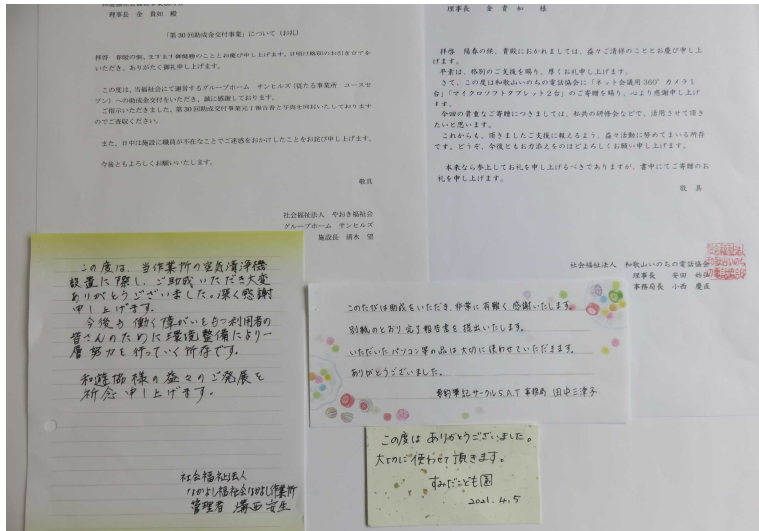 理事長 金 貴知 殿
「第30回助成金交付事業」について(お礼)
拝啓 春暖の候、ますます御健勝のこととお慶び申し上げます。日頃は格別のお引き立てを
いただき、ありがたく御礼申し上げます。
この度は、当福祉会にて運営するグループホーム サンヒルズ(従たる事業所 コースセ
ブン)への助成金交付をいただき、誠に感謝しております。
ご指示いただきました、第30回助成交付事業完了報告書と写真を同封いたしております
のでご査収ください。
また、日中は施設に職員が不在なことでご迷惑をおかけしたことをお詫び申し上げます。
今後ともよろしくお願いいたします。
敬具
社会福祉法人 やおき福祉会
グループホーム サンヒルズ
施設長 清水 望
理事長 金 貴知 様
拝啓 陽春の候、貴殿におかれましては、益々ご清祥のこととお慶び申し上
げます。
平素は、格別のご支援を賜り、厚くお礼申し上げます。
さて、この度は和歌山いのちの電話協会に「ネット会議用360°カメラ1
台」「マイクロソフトタブレット2台」のご寄贈を賜り、心より感謝申し上げ
ます。
今回の貴重なご寄贈につきましては、私共の研修会などで、活用させて頂き
たいと思います。
これからも、頂きましたご支援に報えるよう、益々活動に努めてまいる所存
です。どうぞ、今後ともお力添えをのほどよろしくお願い申し上げます。
本来なら参上してお礼を申し上げるべきでありますが、書中にてご寄贈のお
礼を申し上げます。
敬 具
社会福祉法人 和歌山いのちの電話協会
理事長 安田
事務局長 小西 慶直
この度は、当作業所の空気清浄機
設置に際し、ご助成いただき大変
ありがとうございました。深く感謝
申し上げます。
今後も働く障がいをもつ利用者の
皆さんのために環境整備により一
層努力を行っていく所存です。
和遊協様の益々のご発展を
祈念申し上げます。
社会福祉法人
なかよし福祉会なかよし作業所
管理者 溝西 安生
このたびは助成をいただき、非常に有難く、感謝いたします。
別紙のとおり完了報告書を提出いたします。
いただいたパソコン等の品は大切に使わせていただきます。
ありがとうございました。
要約筆記サークルS.A.T 事務局 田中三津子
この度は ありがとうございました。
大切に使わせて頂きます。
すみだこども園
2021.4.5